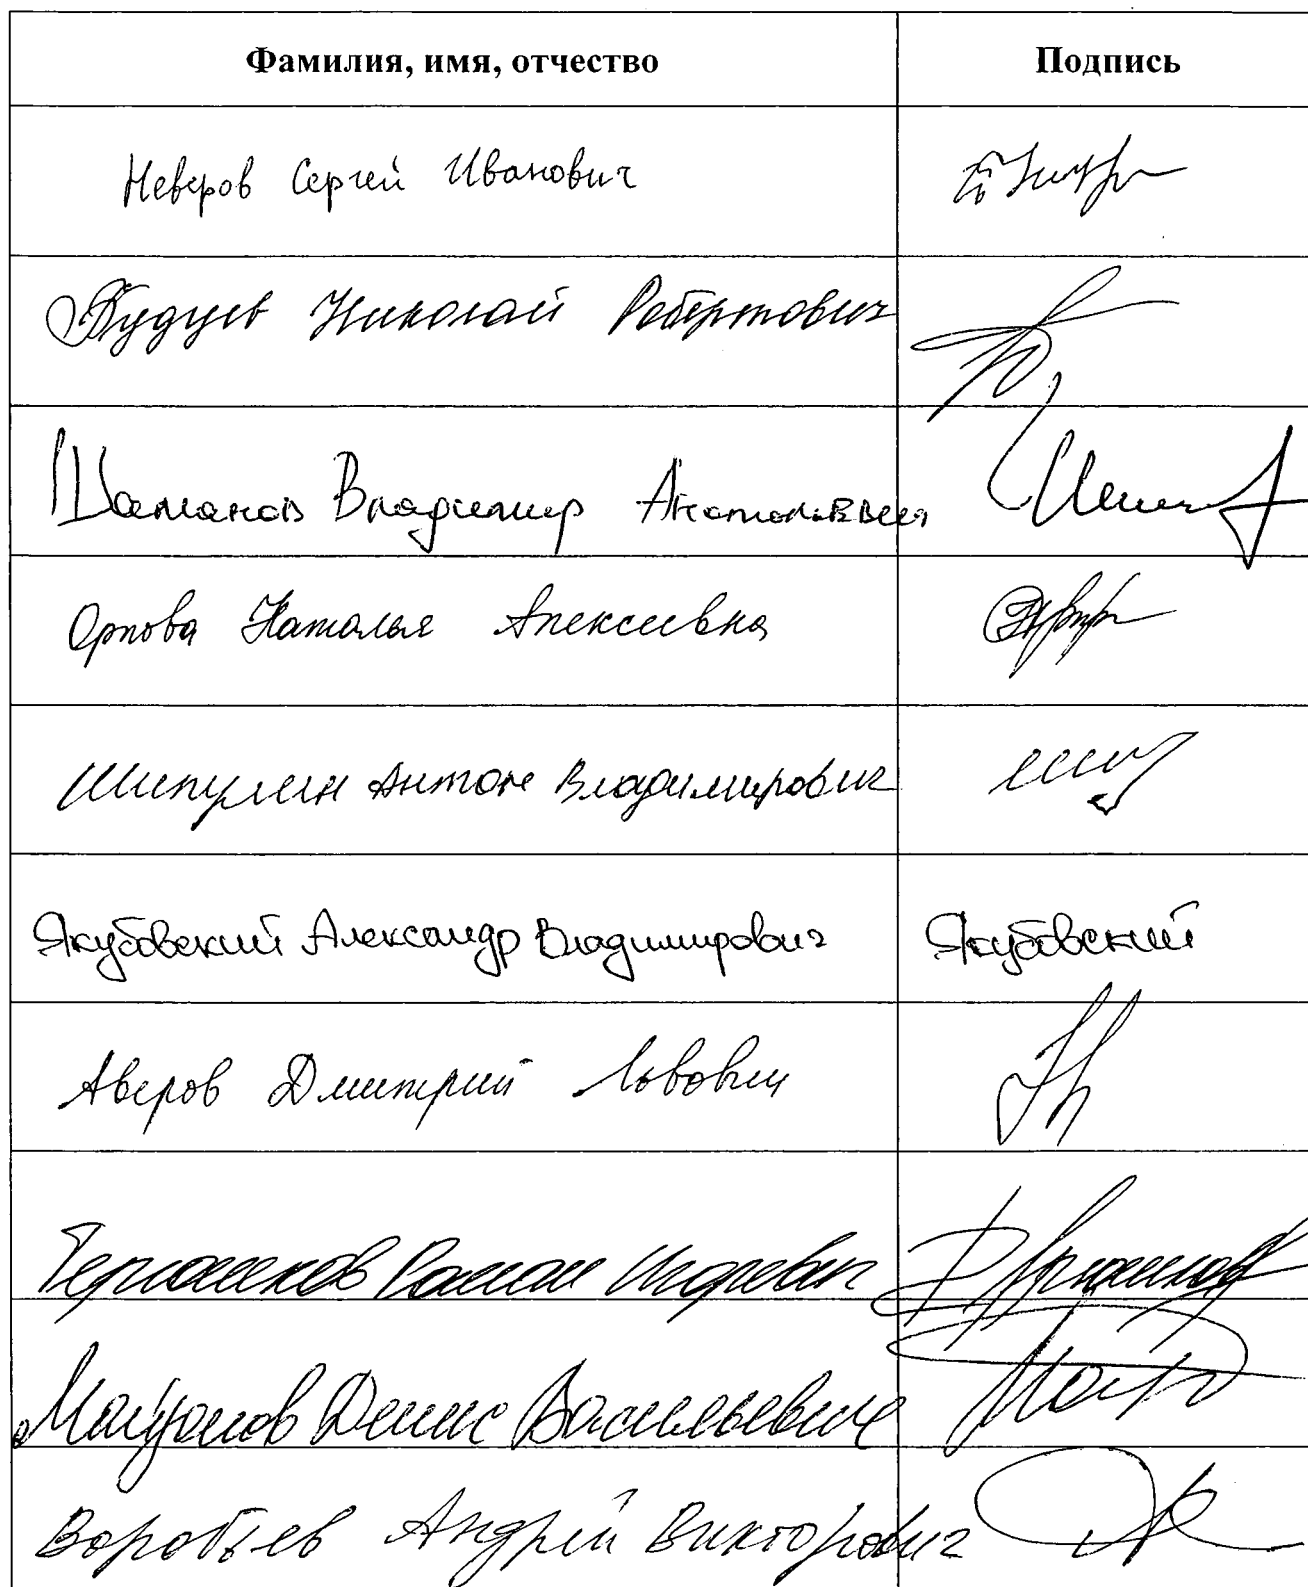 Фамилия, имя, отчество Подпись
Неверов Сергей Иванович
Будуев Николай Робертович
Шаманов Владимир Анатольевич
Орлова Наталья Алексеевна
Шипулин Антон Владимирович
Якубовский Александр Владимирович Якубовский
Аверов Дмитрий Львович
Терюшков Роман Игоревич
Майданов Денис Васильевич
Воробьев Андрей Викторович